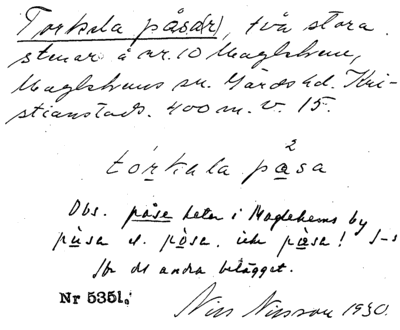 Torkala påsar), två stora
stenar å nr. 10 Maglehem,
Maglehems sn. Gärds hd. Kri-
stianstads. 400 m. V. 15.
tórkala pasa
2
Obs. påse heter i Maglehems by
pusa el. posa, icke påsa! J-s
för det andra belägget.
Nr 5351.
Nils Nilsson 1930.